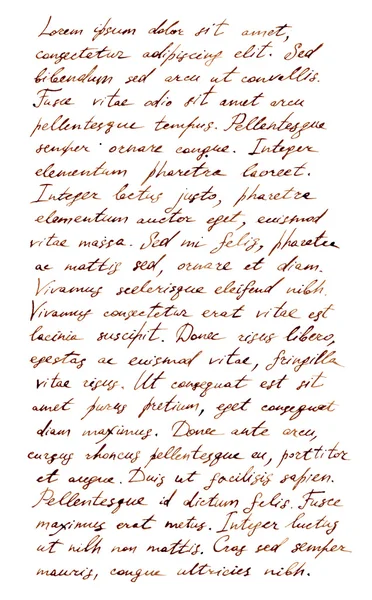 Lorem ipsum dolor sit amet,
consectetur adipiscing elit. Sed
bibendum sed arcu ut convallis.
Fusce vitae odio sit amet arcu
pellentesque tempus. Pellentesque
semper ornare congue. Integer
elementum pharetra laoreet.
Integer lectus justo, pharetra
elementum auctor eget, euismod
vitae massa. Sed mi felis, pharetra
ac mattis sed, ornare et diam.
Vivamus scelerisque eleifend nibh.
Vivamus consectetur erat vitae est
lacinia suscipit. Donec risus libero,
egestas ac euismod vitae, fringilla
vitae risus. Ut consequat est sit
amet purus pretium, eget consequat
diam maximus. Donec ante arcu,
cursus rhoncus pellentesque eu, porttitor
et augue. Duis ut facilisis sapien.
Pellentesque id dictum felis. Fusce
maximus erat metus. Integer luctus
ut nibh non mattis. Cras sed semper
mauris, congue ultricies nibh.